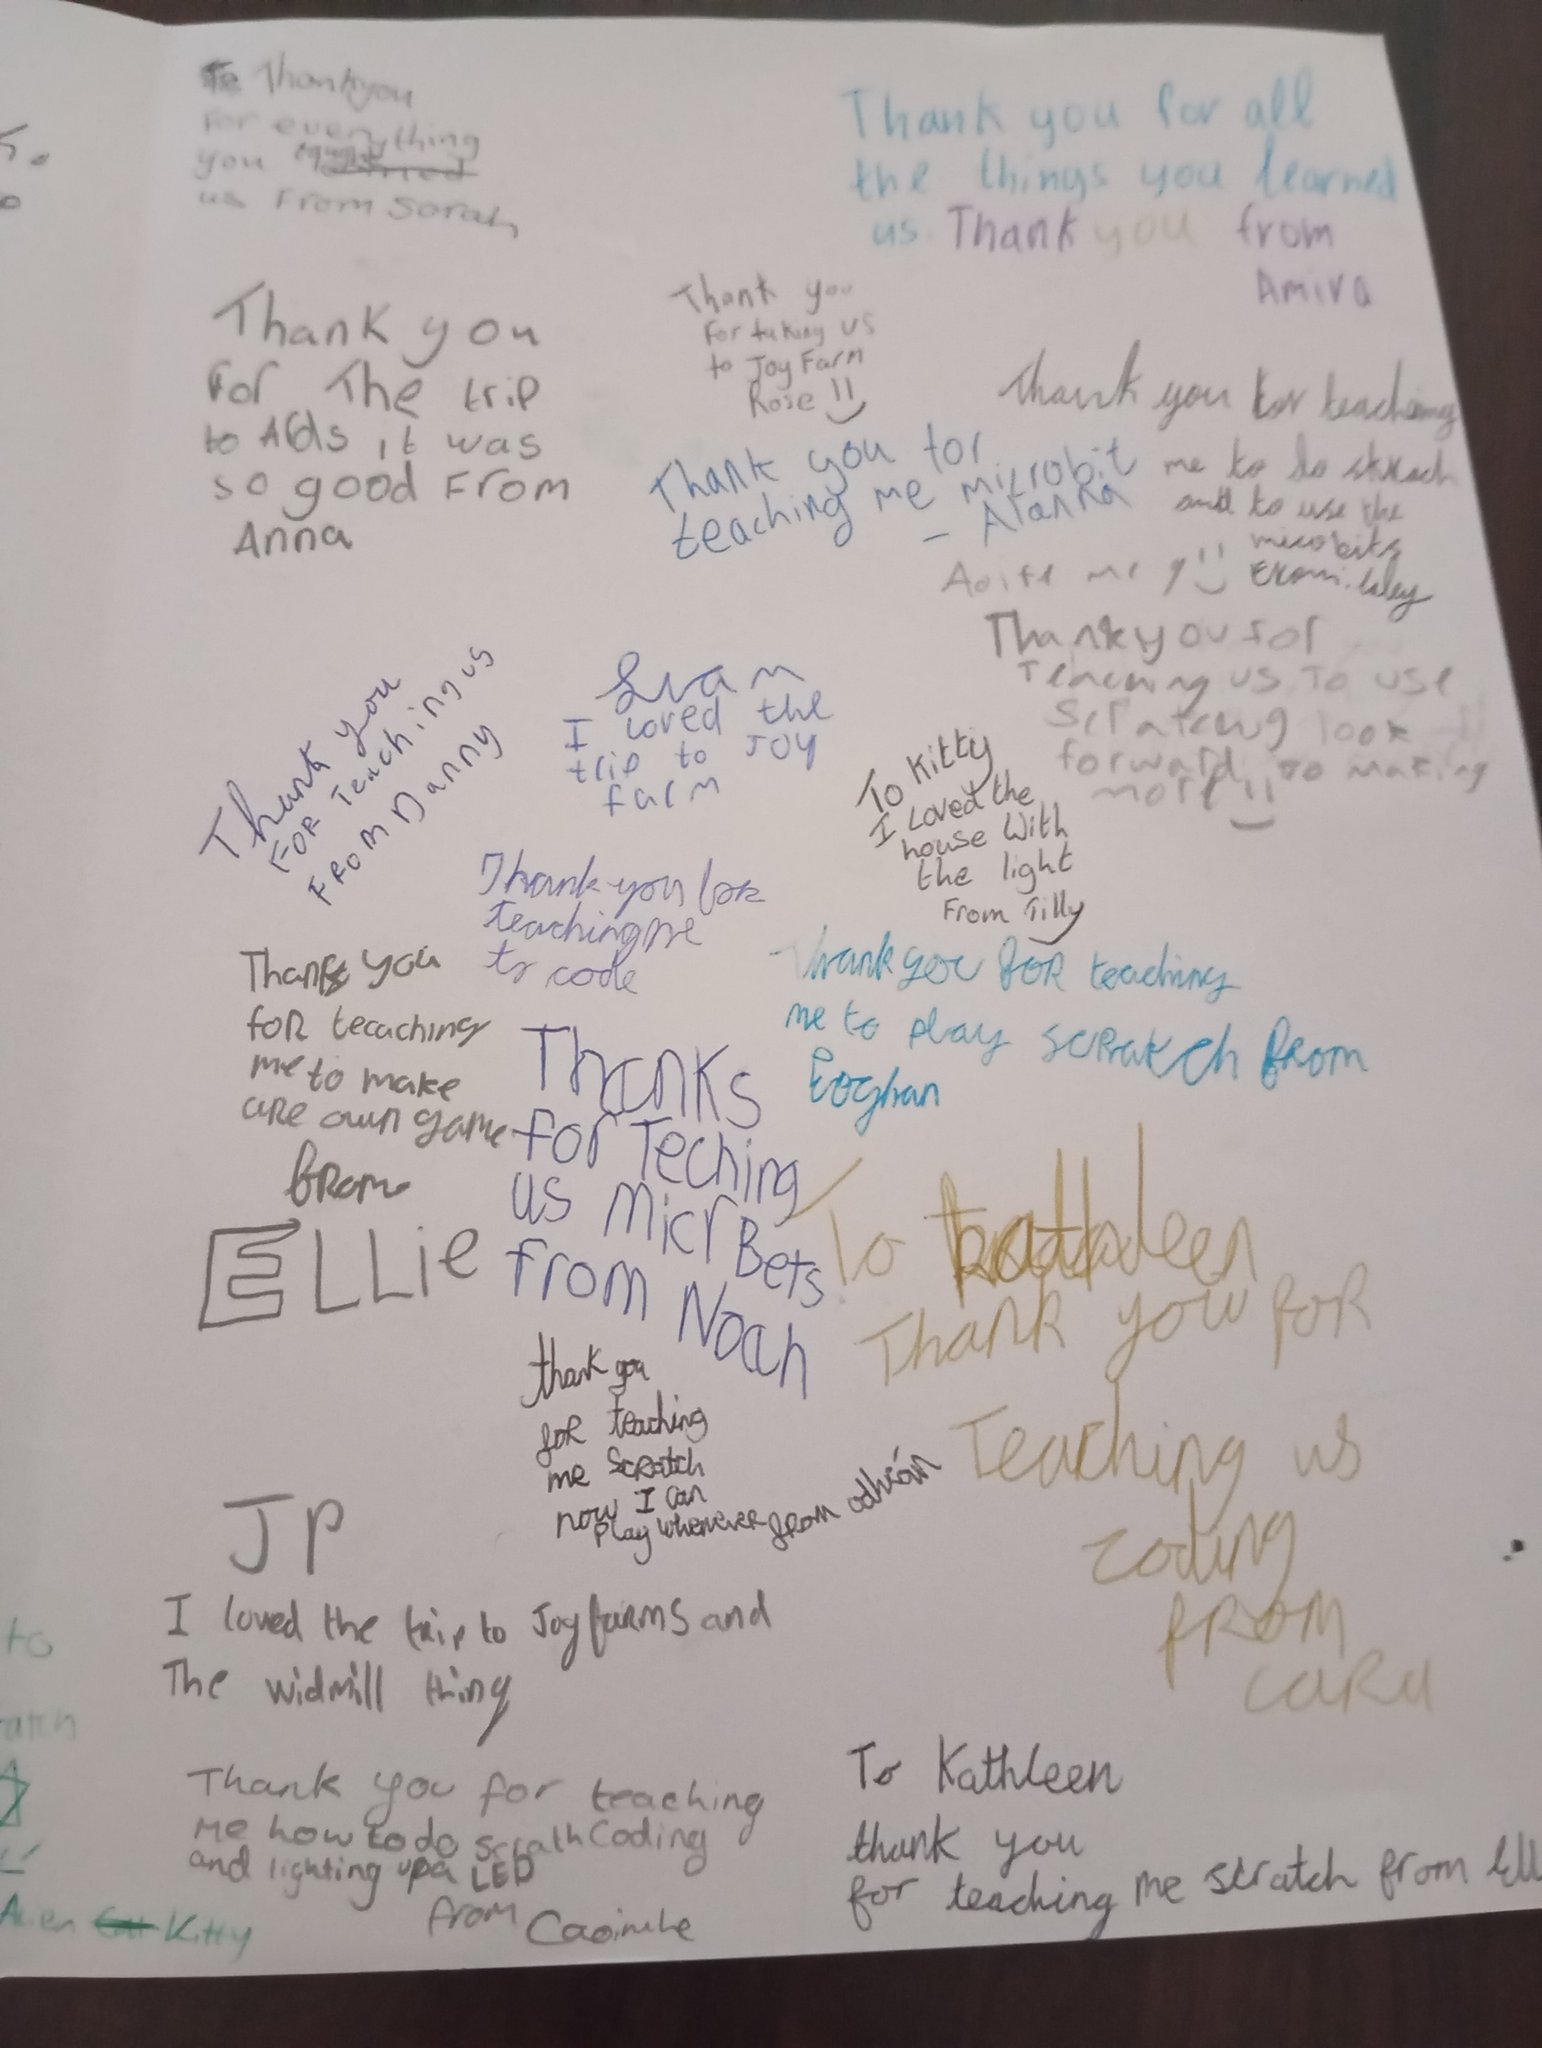 Thankyou
For everything
you taught
us From Sarah
Thank you for all
the things you learned
us. Thank you from
Amira
Thank you
For The trip
to Alds, it was
so good From
Anna
Thank you
For taking us
to Joy Farm
Rose
Thank you for
teaching me microbit
- Alanna
Thank you for teaching
me to do
and to use the
Thankyou for
Teaching us To use
look
forward to making
more
Aoife
Thank you
FOR Teaching us
FROM Danny
Evan
I loved the
trip to JOY
farm
To Kitty
I Loved the
house With
the light
From Tilly
Thank you for
teaching me
to code
Thank you
foR teaching
me to make
are own game
fRom
ELLie
Thank you foR teaching
me to play scRatch fRom
Eoghan
Thanks
for Teching
us Micr Bets
from Noah
To kathleen
Thank you foR
Teaching us
coding
fROM
caRa
thank you
foR teaching
me ScRatch
now I can
play wheneveR fRom odhrán
JP
I loved the trip to Joyfarms and
The widmill thing
to
atch
Kitty
Thank you for teaching
me how to do scrath Coding
and lighting up a LED
from Caoimhe
To Kathleen
thank you
for teaching me scratch from Ell